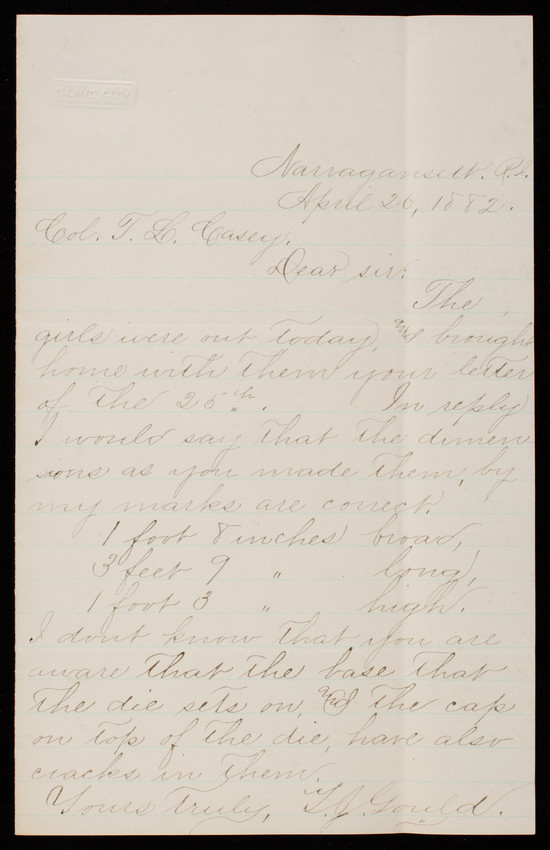 ISLAND CITY
Narragansett. R.I.
April 26, 1882.
Col. T. L. Casey.
Dear sir:
The
girls were out today, and brought
home with them your letter
of the 25th. In reply
I would say that the dimen-
sions as you made them, by
my marks are correct.
1 foot 8 inches broad,
3 feet 9 " long,
1 foot 3 " high.
I dont know that you are
aware that the base that
the die sets on, and the cap
on top of the die, have also
cracks in them.
Yours truly, T. J. Gould.